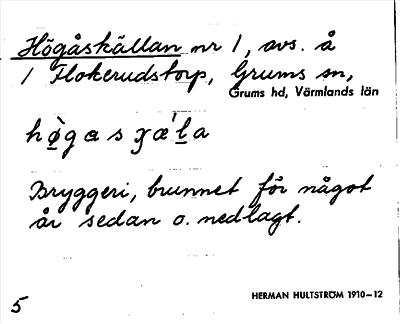 Högåskällan nr 1, avs. å
1 Flokerudstorp, Grums sn,
Grums hd, Värmlands län
hø̀gasχæ'la
Bryggeri, brunnet för något
år sedan o. nedlagt.
5
HERMAN HULTSTRÖM 1910–12